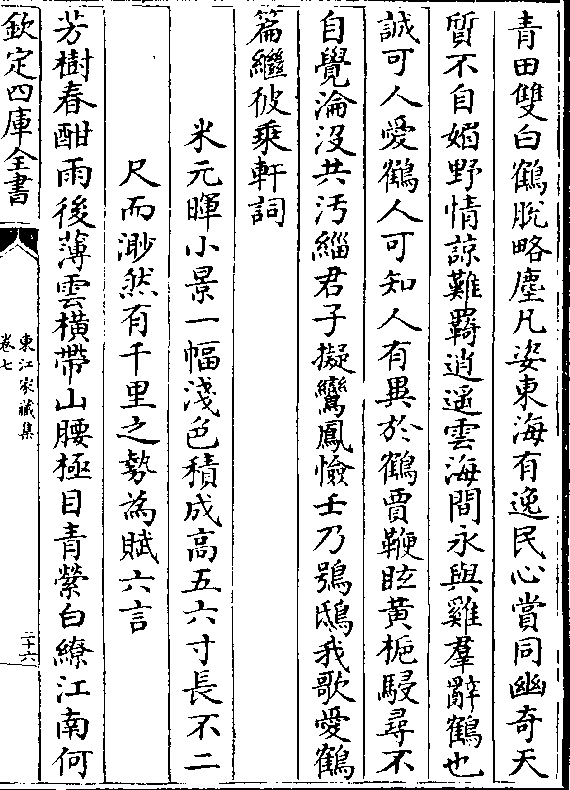 青田雙白鶴脫略塵凡姿東海有逸民心賞同幽奇天
質不自媚野情諒難羇逍遥雲海間永與雞羣辭鶴也
誠可人愛鶴人可知人有異於鶴賈鞭眩黄梔駸尋不
自覺淪没共汚緇君子擬鸞鳳憸壬乃鴞鴟我歌愛鶴
篇繼彼乘軒詞
米元暉小景一幅淺色積成高五六寸長不二
尺而渺然有千里之勢為賦六言
芳樹春酣雨後薄雲橫帶山腰極目青縈白繚江南何
欽定四庫全書
東江家藏集
卷七
二十六